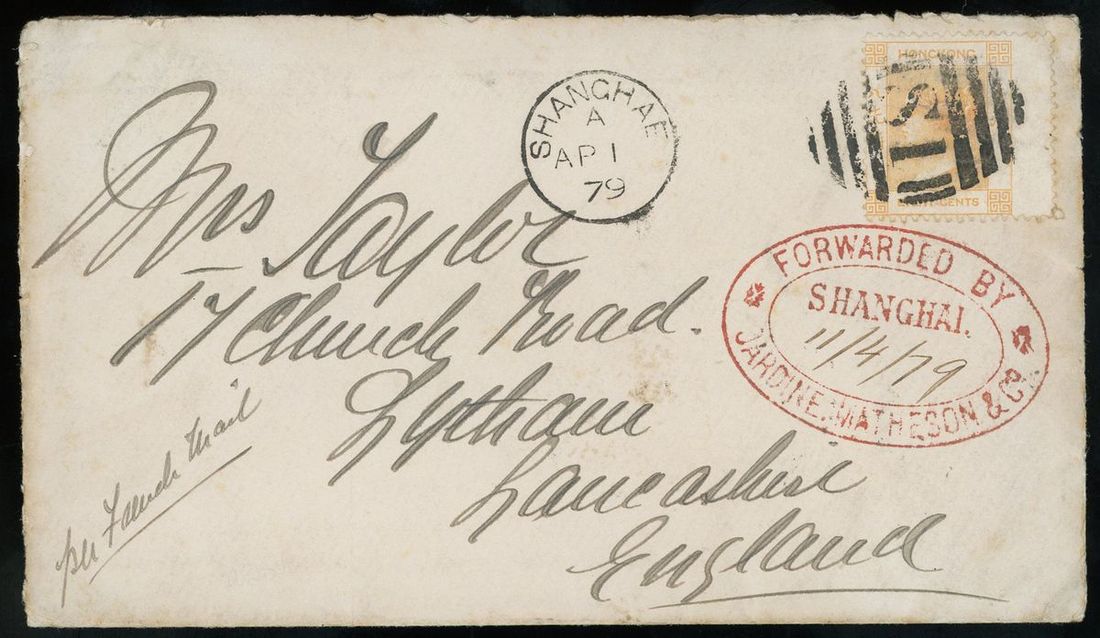 HONGKONG
CENTS
S1
SHANGHAE
A
AP 1
79
FORWARDED BY
SHANGHAI.
11/4/79
JARDINE, MATHESON & Co
Mrs Taylor
17 Church Road.
Lytham
Lancashire
England
per French Mail